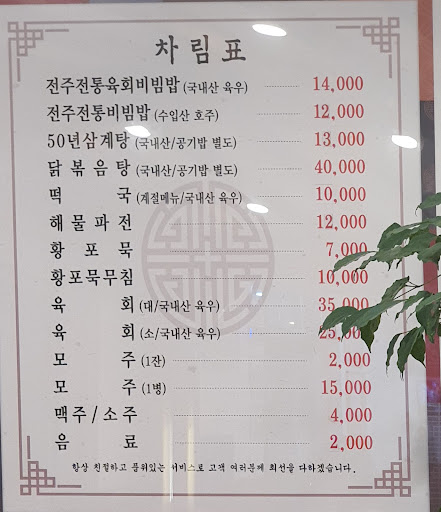 차림표
전주전통육회비빔밥 (국내산 육우) 14,000
전주전통비빔밥 (수입산 호주) 12,000
50년삼계탕 (국내산/공기밥 별도) 13,000
닭볶음탕 (국내산/공기밥 별도) 40,000
떡국 (계절메뉴/국내산 육우) 10,000
해물파전 12,000
황포묵 7,000
황포묵무침 10,000
육회 (대/국내산 육우) 35,000
육회 (소/국내산 육우) 25,000
모주 (1잔) 2,000
모주 (1병) 15,000
맥주/소주 4,000
음료 2,000
항상 친절하고 품위있는 서비스로 고객 여러분께 최선을 다하겠습니다.